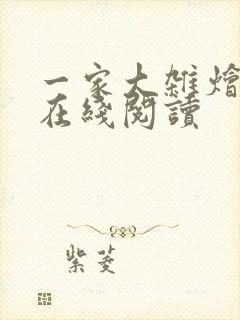 一家大雜燴
在綫閱讀
紫菱